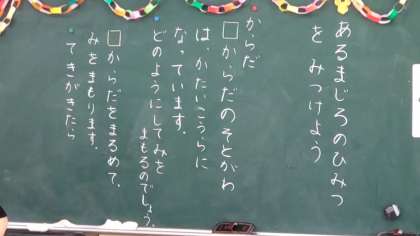 あるまじろのひみつ
を みつけよう
からだ
□からだのそとがわ
は、かたいこうらに
なっています。
どのようにしてみを
まもるのでしょう。
□からだをまるめて、
みをまもります。
てきがきたら